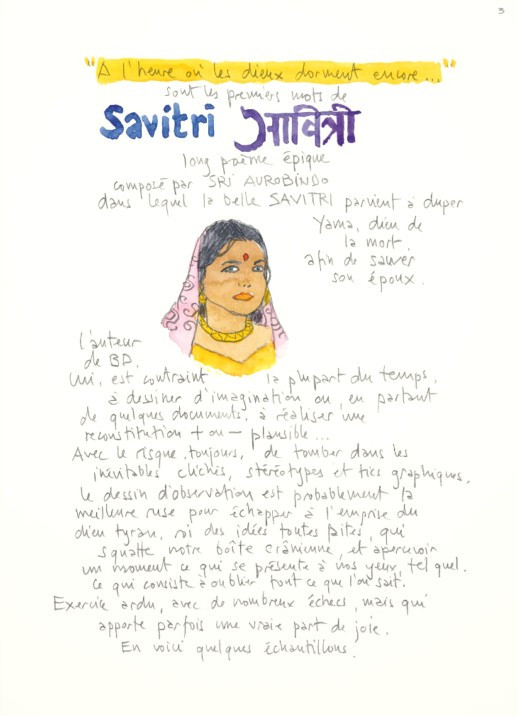 3
"A l'heure où les dieux dorment encore..."
sont les premiers mots de
Savitri सावित्री
long poème épique
composé par SRI AUROBINDO
dans lequel la belle SAVITRI parvient à duper
Yama, dieu de
la mort,
afin de sauver
son époux.
L'auteur
de BD,
lui, est contraint la plupart du temps,
à dessiner d'imagination ou, en partant
de quelques documents, à réaliser une
reconstitution + ou - plausible...
Avec le risque, toujours, de tomber dans les
inévitables clichés, stéréotypes et tics graphiques.
Le dessin d'observation est probablement la
meilleure ruse pour échapper à l'emprise du
dieu tyran, roi des idées toutes faites, qui
squatte notre boîte crânienne, et apercevoir
un moment ce qui se présente à nos yeux, tel quel.
Ce qui consiste à oublier tout ce que l'on sait.
Exercice ardu, avec de nombreux échecs, mais qui
apporte parfois une vraie part de joie.
En voici quelques échantillons.